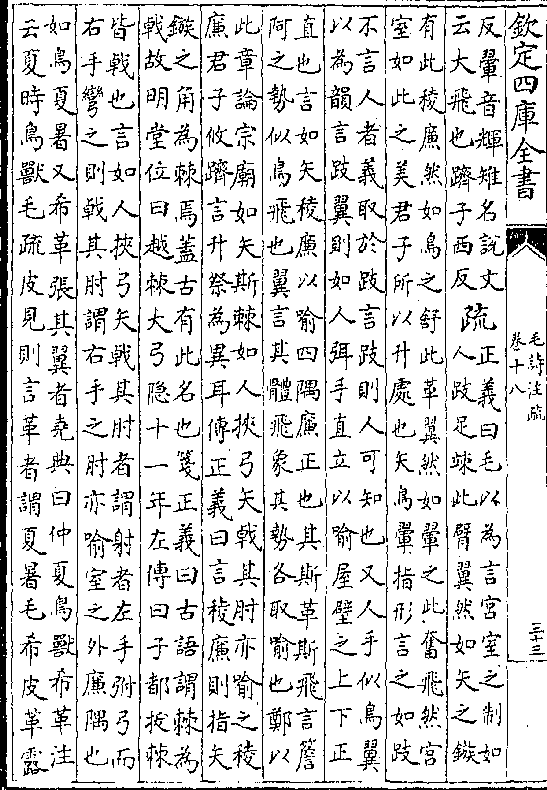 欽定四庫全書
毛詩注疏
卷十八
三十三
反翬音輝雉名說文
云大飛也躋子西反
疏
正義曰毛以為言宮室之制如
人跂足竦此臂翼然如矢之鏃
有此稜廉然如鳥之舒此革翼然如翬之此奮飛然宮
室如此之美君子所以升處也矢鳥翬指形言之如跂
不言人者義取於跂言跂則人可知也又人手似鳥翼
以為韻言跂翼則如人弭手直立以喻屋壁之上下正
直也言如矢稜廉以喻四隅廉正也其斯革斯飛言簷
阿之勢似鳥飛也翼言其體飛象其勢各取喻也鄭以
此章論宗廟如矢斯棘如人挾弓矢戟其肘亦喻之稜
廉君子攸躋言升祭為異耳傳正義曰言稜廉則指矢
鏃之角為棘焉蓋古有此名也箋正義曰古語謂棘為
戟故明堂位曰越棘大弓隱十一年左傳曰子都拔棘
皆戟也言如人挾弓矢戟其肘者謂射者左手弣弓而
右手彎之則戟其肘謂右手之肘亦喻室之外廉隅也
如鳥夏暑又希革張其翼者堯典曰仲夏鳥獸希革注
云夏時鳥獸毛疏皮見則言革者謂夏暑毛希皮革露